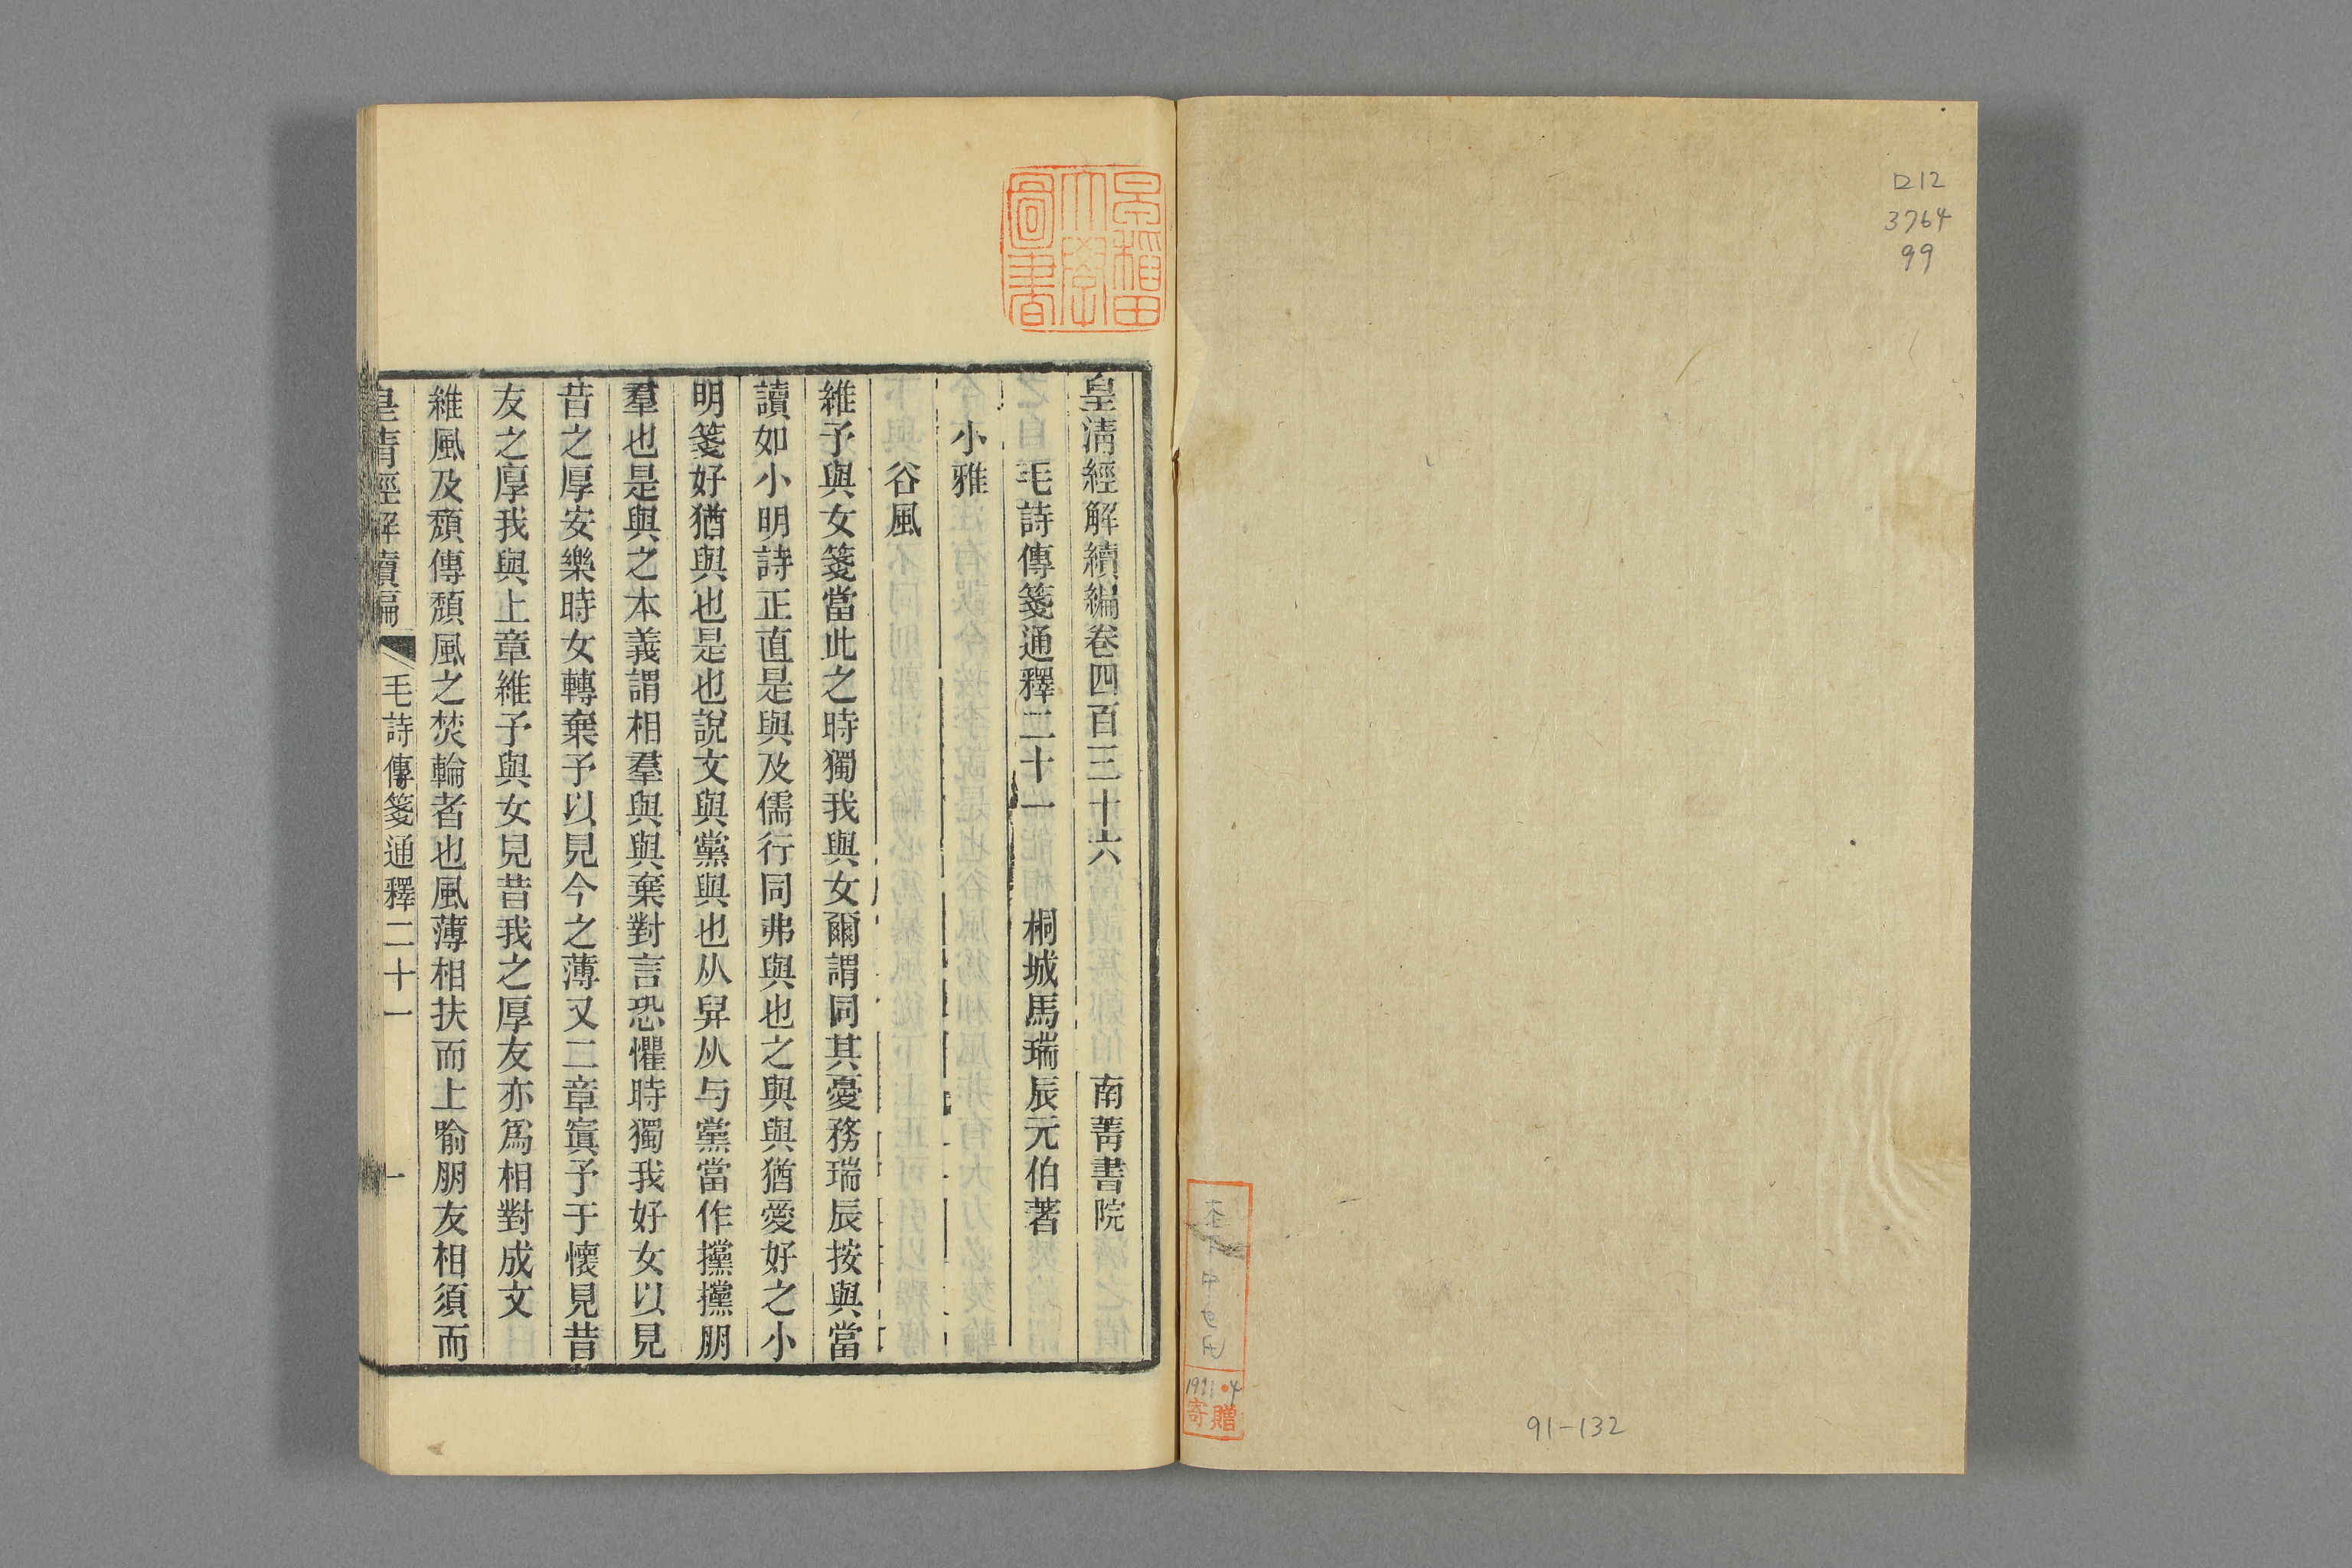 ロ12
3764
99
91-132
1991.4
寄贈
早稲田大學圖書
皇淸經解續編卷四百三十六 南菁書院
毛詩傳箋通釋二十一 桐城馬瑞辰元伯著
小雅
谷風
維予與女箋當此之時獨我與女爾謂同其憂務瑞辰按與當
讀如小明詩正直是與及儒行同弗與也之與與猶愛好之小
明箋好猶與也是也說文與黨與也从舁从与黨當作攩攩朋
羣也是與之本義謂相羣與與棄對言恐懼時獨我好女以見
昔之厚安樂時女轉棄予以見今之薄又二章寘予于懷見昔
友之厚我與上章維予與女見昔我之厚友亦爲相對成文
維風及頹傳頹風之焚輪者也風薄相扶而上喻朋友相須而
皇淸經解續編 毛詩傳箋通釋二十一 一